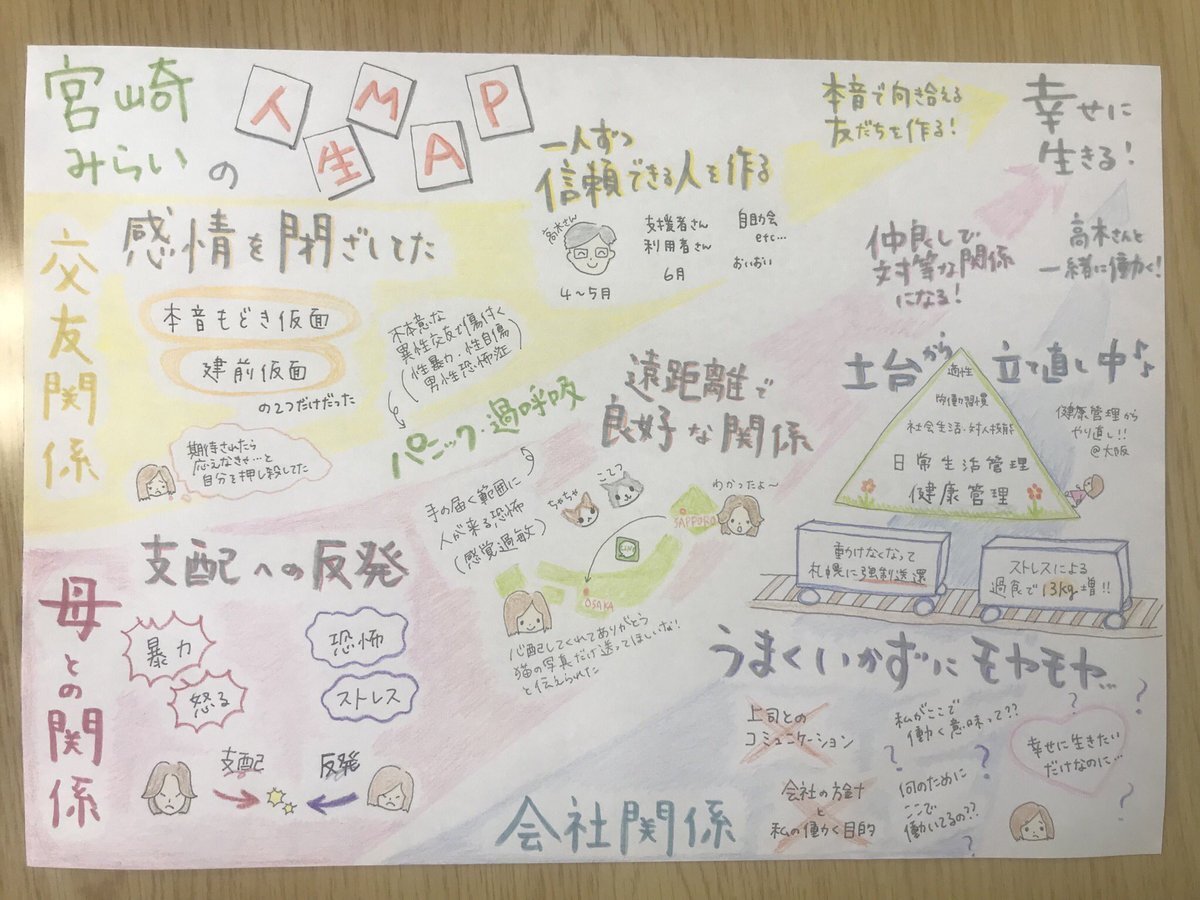 宮崎
みらいの
人生MAP
交友関係
感情を閉ざしてた
本音もどき仮面
建前仮面
の2つだけだった
期待されたら
応えなきゃ…と
自分を押し殺してた
不本意な
異性交友で傷付く
(性暴力・性自傷
男性恐怖症)
パニック・過呼吸
手の届く範囲に
人が来る恐怖
(感覚過敏)
一人ずつ
信頼できる人を作る
高木さん
4〜5月
支援者さん
利用者さん
6月
自助会
etc…
おいおい
本音で向き合える
友だちを作る!
幸せに
生きる!
母との関係
支配への反発
暴力
怒る
恐怖
ストレス
支配
反発
遠距離で
良好な関係
ちゃちゃ
こてつ
わかったよ〜
SAPPORO
LINE
OSAKA
心配してくれてありがとう
猫の写真だけ送ってほしいな!
と伝えられた
仲良しで
対等な関係
になる!
会社関係
うまくいかずにモヤモヤ…
上司との
コミュニケーション
会社の方針
と
私の働く目的
私がここで
働く意味って??
何のために
ここで
働いてるの??
幸せに生きたい
だけなのに…
動けなくなって
札幌に強制送還
ストレスによる
過食で13kg増!!
土台から立て直し中♪
適性
労働習慣
社会生活・対人技能
日常生活管理
健康管理
健康管理から
やり直し!!
@大阪
高木さんと
一緒に働く!